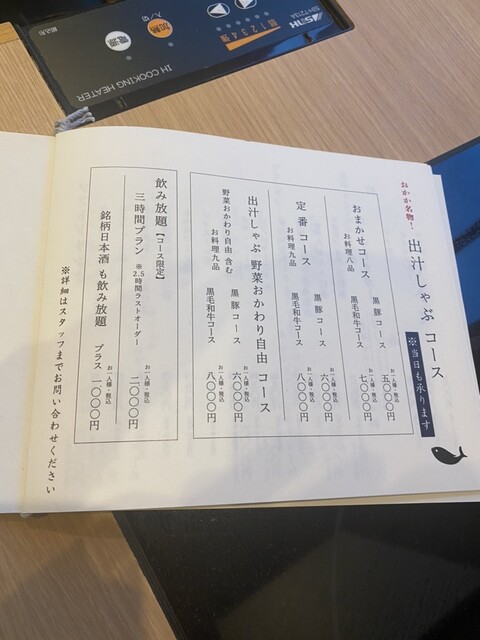 おかか名物！
出汁しゃぶ コース
※当日も承ります
おまかせコース
お料理八品
黒豚コース
お一人様・税込
五〇〇〇円
黒毛和牛コース
お一人様・税込
七〇〇〇円
定番コース
お料理九品
黒豚コース
お一人様・税込
六〇〇〇円
黒毛和牛コース
お一人様・税込
八〇〇〇円
出汁しゃぶ 野菜おかわり自由 コース
野菜おかわり自由 含む
お料理九品
黒豚コース
お一人様・税込
六〇〇〇円
黒毛和牛コース
お一人様・税込
八〇〇〇円
飲み放題【コース限定】
三時間プラン ※2.5時間ラストオーダー
お一人様・税込
二〇〇〇円
銘柄日本酒 も飲み放題
お一人様・税込
プラス 一〇〇〇円
※詳細はスタッフまでお問い合わせください
IH COOKING HEATER
電源
加熱
入/切
1 2 3 4 強